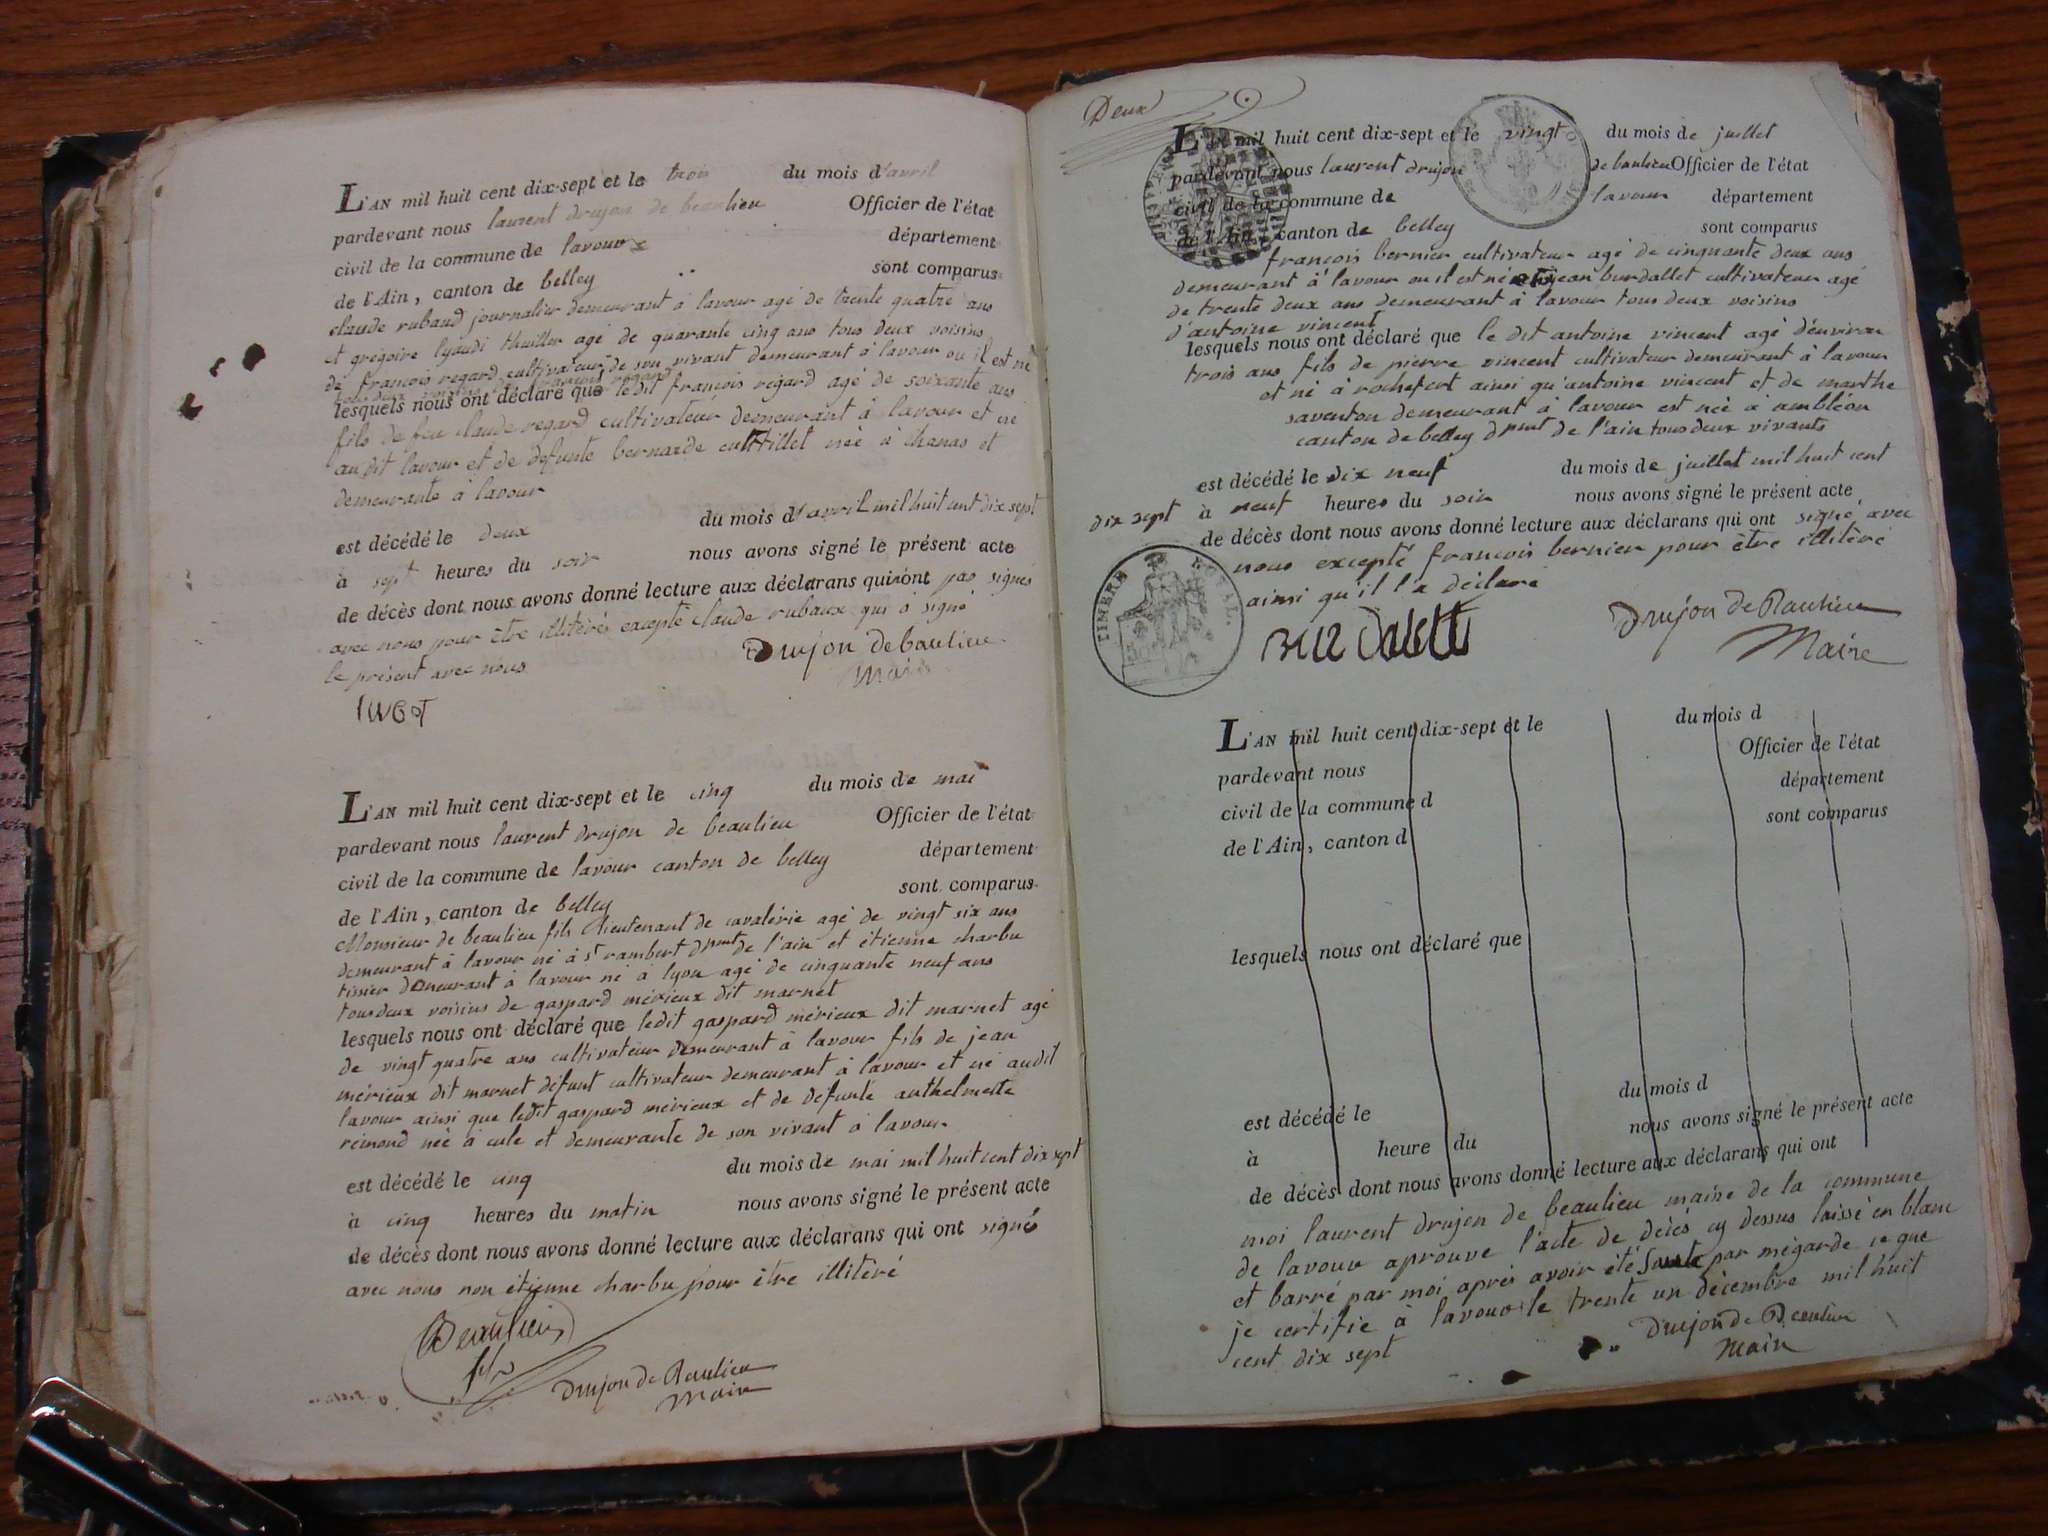 L'AN mil huit cent dix-sept et le trois du mois d'avril
pardevant nous laurent drujon de beaulieu Officier de l'état
civil de la commune de lavour département
de l'Ain, canton de belley sont comparus
claude rubaud journalier demeurant à lavour agé de trente quatre ans
et grégoire lyaudi thuillier agé de quarante cinq ans tous deux voisins
de françois regard cultivateur de son vivant demeurant à lavour ou il est né
lesquels nous ont déclaré que ledit françois regard agé de soixante ans
fils de feu claude regard cultivateur demeurant à lavour et né
au dit lavour et de defunte bernarde née à chanas et
demeurante à lavour
est décédé le deux du mois d'avril mil huit cent dix sept
à sept heures du soir nous avons signé le présent acte
de décès dont nous avons donné lecture aux déclarans qui n'ont pas signés
avec nous pour être illitérés excepté claude rubaux qui a signé
le présent avec nous
Drujon De baulieu
Maire
L'AN mil huit cent dix-sept et le cinq du mois de mai
pardevant nous laurent drujon de beaulieu Officier de l'état
civil de la commune de lavour canton de belley département
de l'Ain, canton de belley sont comparus
Monsieur de beaulieu fils lieutenant de cavalérie agé de vingt six ans
demeurant à lavour né à st rambert dpmt de l'ain et étienne charbu
tissier demeurant à lavour né à lyon agé de cinquante neuf ans
tous deux voisins de gaspard mérieux dit marnet
lesquels nous ont déclaré que ledit gaspard mérieux dit marnet agé
de vingt quatre ans cultivateur demeurant à lavour fils de jean
mérieux dit marnet défunt cultivateur demeurant à lavour et né audit
lavour ainsi que ledit gaspard mérieux et de défunte anthelmette
rémond née à cule et demeurante de son vivant à lavour
est décédé le cinq du mois de mai mil huit cent dix sept
à cinq heures du matin nous avons signé le présent acte
de décès dont nous avons donné lecture aux déclarans qui ont signés
avec nous non étienne charbu pour être illitéré
Beaulieu
fils
Drujon De Baulieu
Maire
Deux
L'AN mil huit cent dix-sept et le vingt du mois de juillet
pardevant nous laurent drujon de baulieu Officier de l'état
civil de la commune de lavour département
de l'Ain, canton de belley sont comparus
françois bernier cultivateur agé de cinquante deux ans
demeurant à lavour ou il est né et jean burdallet cultivateur agé
de trente deux ans demeurant à lavour tous deux voisins
d'antoine vincent
lesquels nous ont déclaré que le dit antoine vincent agé d'environ
trois ans fils de pierre vincent cultivateur demeurant à lavour
et né à rochefort ainsi qu'antoine vincent et de marthe
saventon demeurant à lavour est née à ambléon
canton de belley dpmt de l'ain tous deux vivants
est décédé le dix neuf du mois de juillet mil huit cent
dix sept à neuf heures du soir nous avons signé le présent acte
de décès dont nous avons donné lecture aux déclarans qui ont signé avec
nous excepté françois bernier pour être illitéré
ainsi qu'il l'a déclaré
TIMBRE ROYAL
Drujon De Baulieu
Maire
L'AN mil huit cent dix-sept et le du mois d
pardevant nous Officier de l'état
civil de la commune d département
de l'Ain, canton d sont comparus
lesquels nous ont déclaré que
est décédé le du mois d
à heure du nous avons signé le présent acte
de décès dont nous avons donné lecture aux déclarans qui ont
moi laurent drujon de beaulieu maire de la commune
de lavour aprouve l'acte de décès cy dessus laissé en blanc
et barré par moi après avoir été par mégarde ce que
je certifie à lavour le trente un décembre mil huit
cent dix sept
Drujon De Beaulieu
Maire